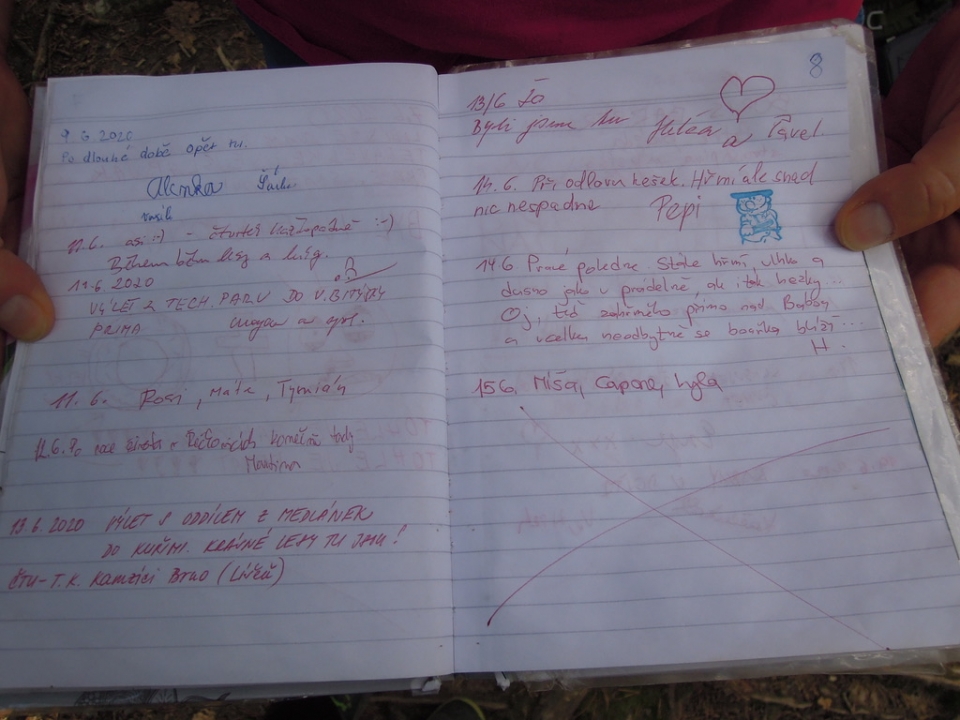 9.6.2020
Po dlouhé době opět tu.
Alenka Šárka
11.6. asi :-) - čtvrtek každopádně :-)
Během běhu
11.6.2020
VÝLET Z TECH. PARU DO V. BITÝŠKY
PRIMA
11.6. Rosi, Máta, Tymián
12.6. Po roce života v konečně tady
Martina
13.6.2020 VÝLET S ODDÍLEM Z MEDLÁNEK
DO KUŘIMI. KRÁSNÉ LESY TU JSOU!
ČTU-T.K. Kamzíci Brno
8
13/6 So
Byli jsme tu a Pavel
14.6. Při odlovu kešek. Hřmí ale snad
nic nespadne Pepi
14.6 Pravé poledne. Stále hřmí, vlhko a
dusno jako v prádelně, ale i tak hezky...
Oj, teď zahřmělo přímo nad Babou
a vcelku neodbytně se bouřka blíží...
H.
15.6. Míša, Capone, hyla